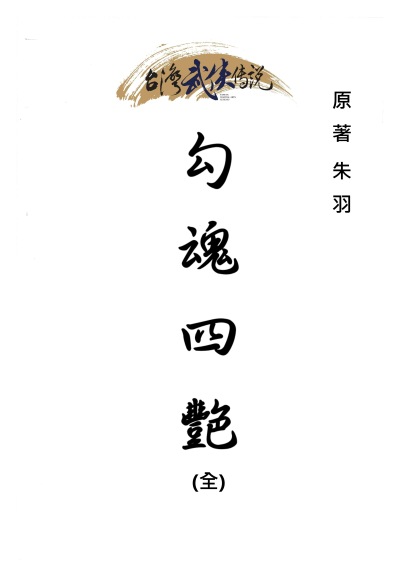 台灣武俠传説
原著 朱羽
勾魂四艷
(全)